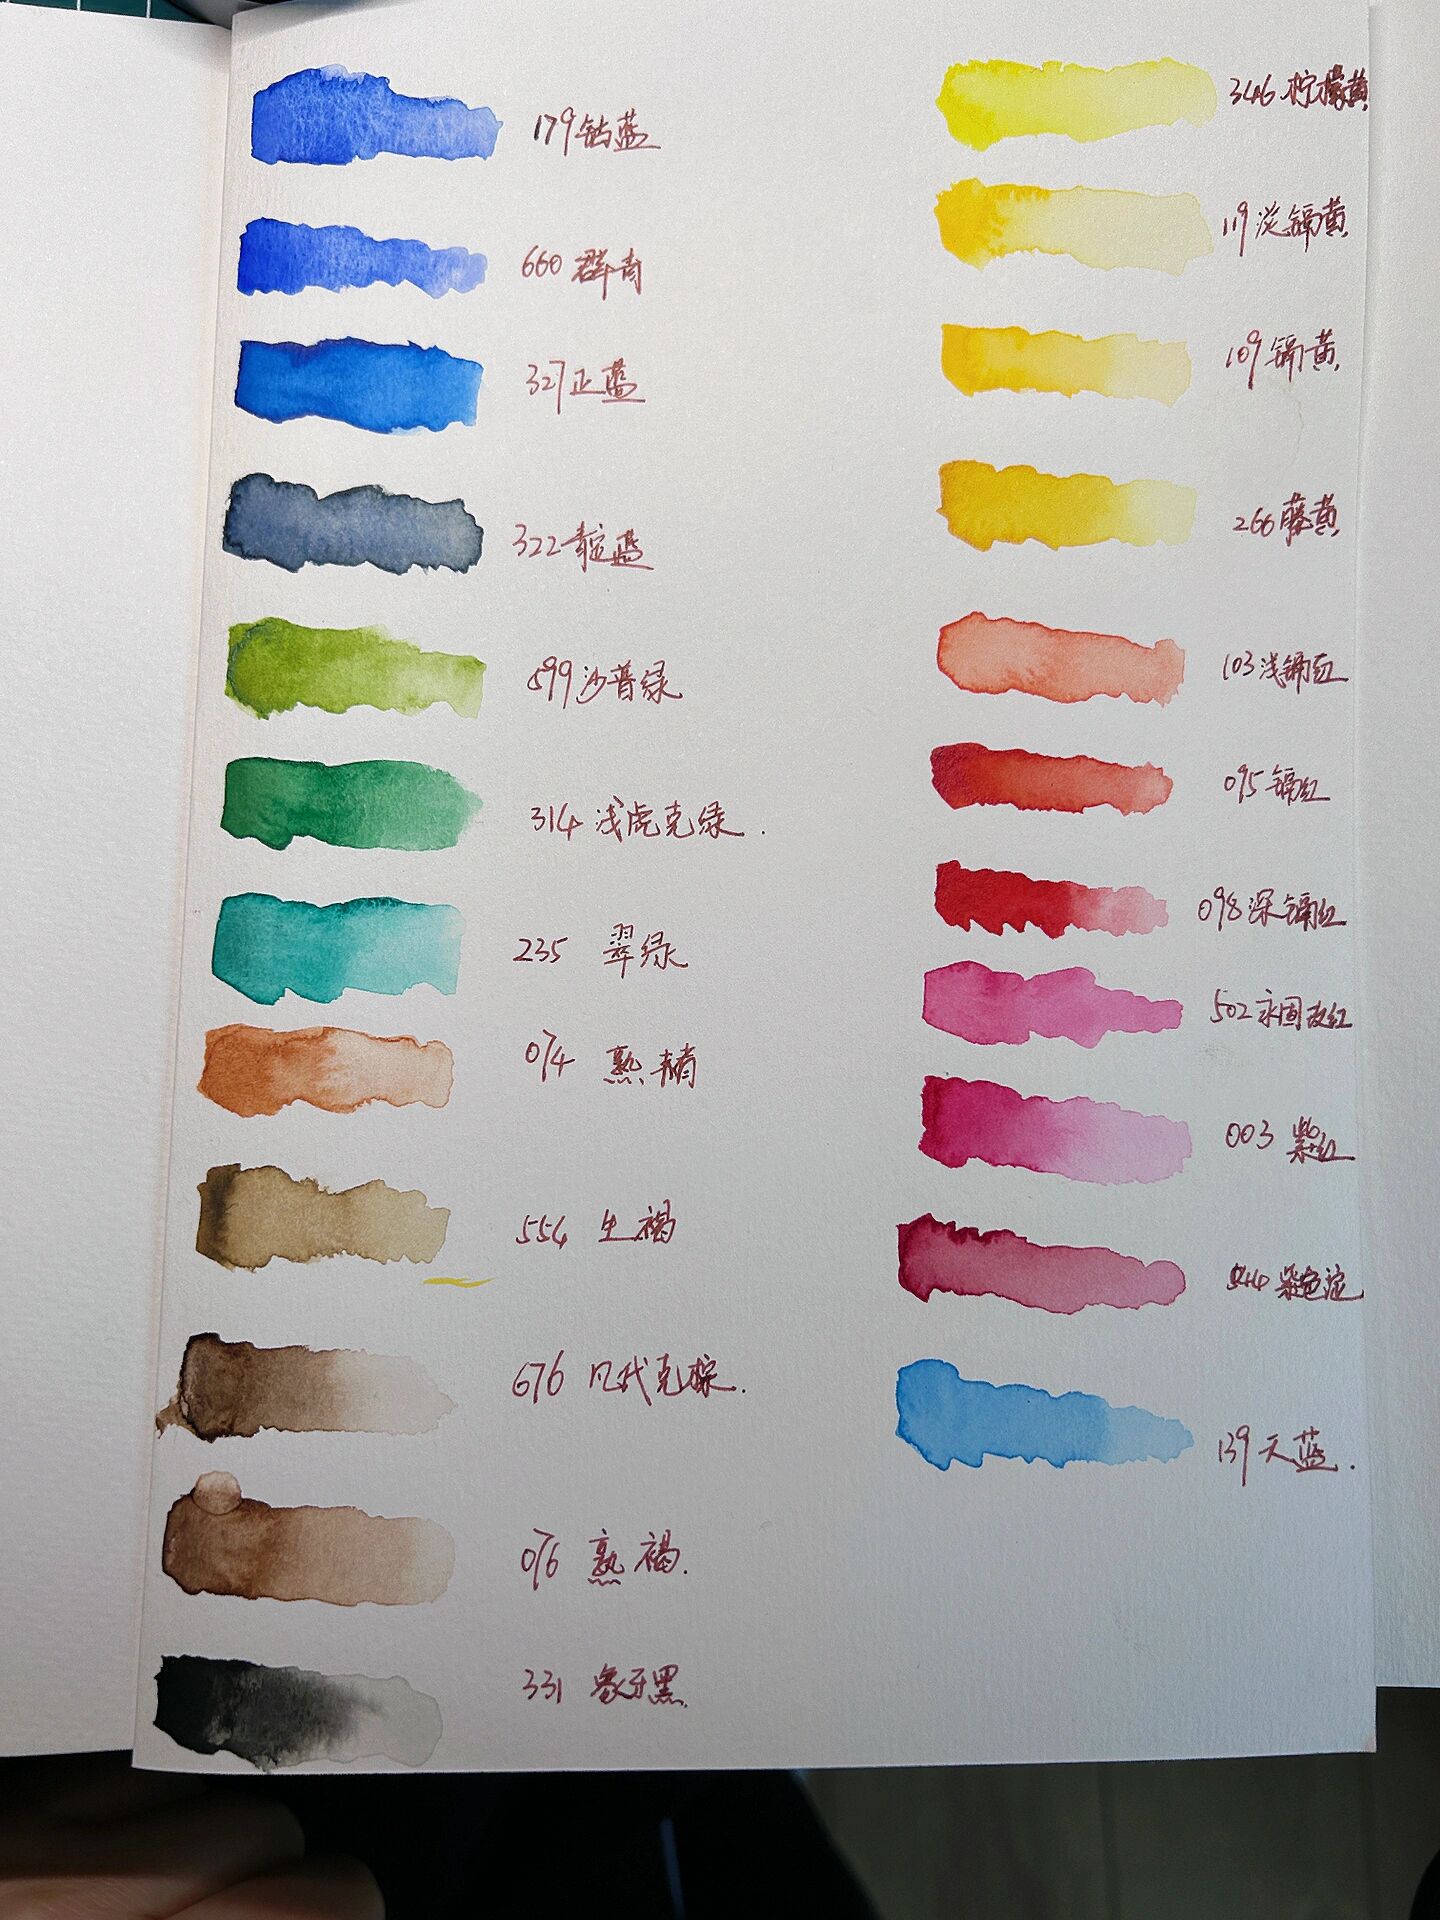 179 钴蓝
660 群青
327 正蓝
322 靛蓝
599 沙普绿
314 浅虎克绿.
235 翠绿
074 熟赭
554 生褐
676 凡代克棕.
076 熟褐.
331 象牙黑.
346 柠檬黄
119 淡镉黄
109 镉黄
266 藤黄
103 浅镉红
095 镉红
098 深镉红
502 永固玫红
003 紫红
544 紫色淀
139 天蓝.